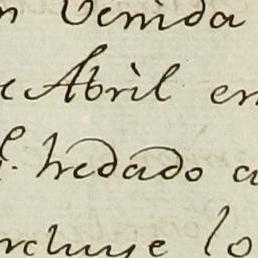 n Venida
e Abril en
l. hredado a
rcluye lo